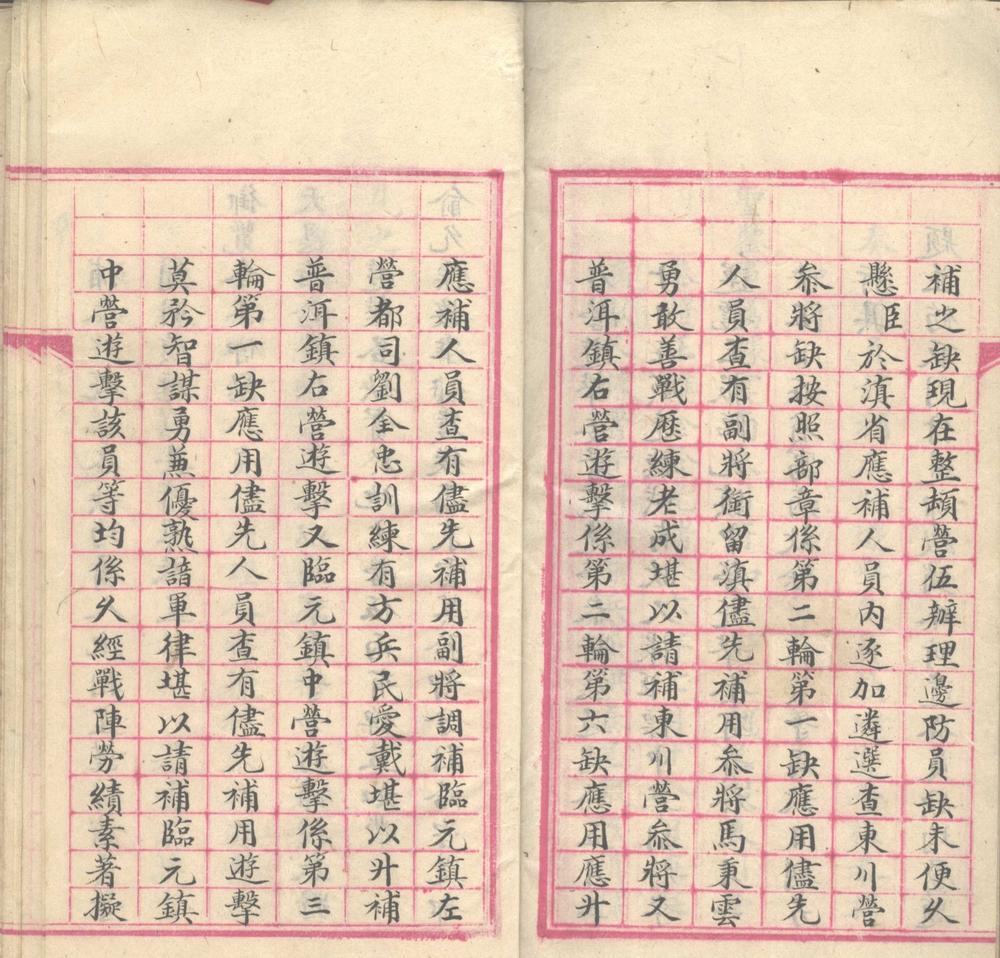 補之缺現在整頓營伍辦理邊防員缺未便久
懸臣於滇省應補人員內逐加遴選查東川營
叅將缺按照部章係第二輪第一缺應用儘先
人員查有副將銜留滇儘先補用叅將馬秉雲
勇敢善戰歷練老成堪以請補東川營叅將又
普洱鎮右營遊擊係第二輪第六缺應用應升
應補人員查有儘先補用副將調補臨元鎮左
營都司劉全忠訓練有方兵民愛戴堪以升補
普洱鎮右營遊擊又臨元鎮中營遊擊係第三
輪第一缺應用儘先人員查有儘先補用遊擊
莫矜智謀勇兼優熟諳軍律堪以請補臨元鎮
中營遊擊該員等均係久經戰陣勞績素著擬